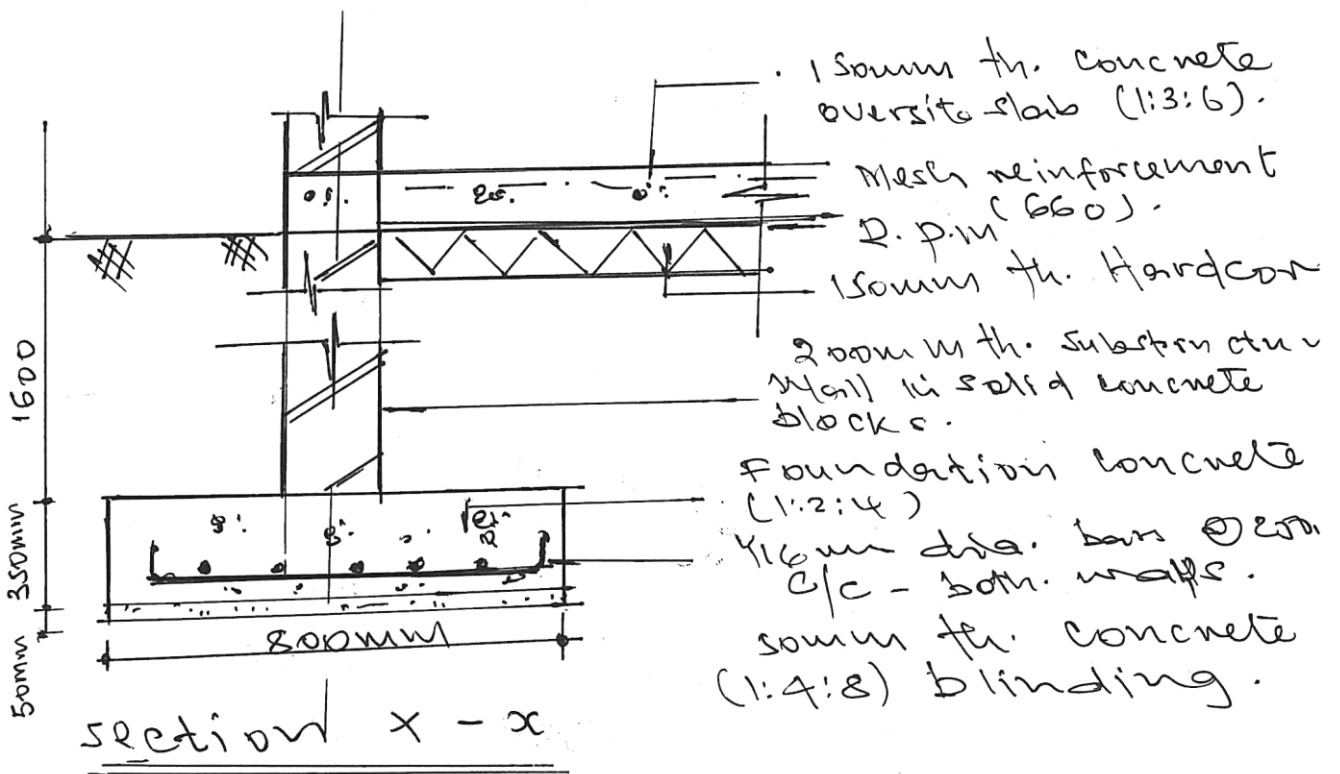 . 150mm th. concrete
oversite slab (1:3:6).
Mesh reinforcement
(660).
D.p.m
150mm th. Hardcor
200mm th. substructu
Wall in solid concrete
blocks.
Foundation concrete
(1:2:4)
Y16mm dia. bars @ 200
c/c - both ways.
50mm th. concrete
(1:4:8) blinding.
1600
350mm
50mm
800mm
section x - x